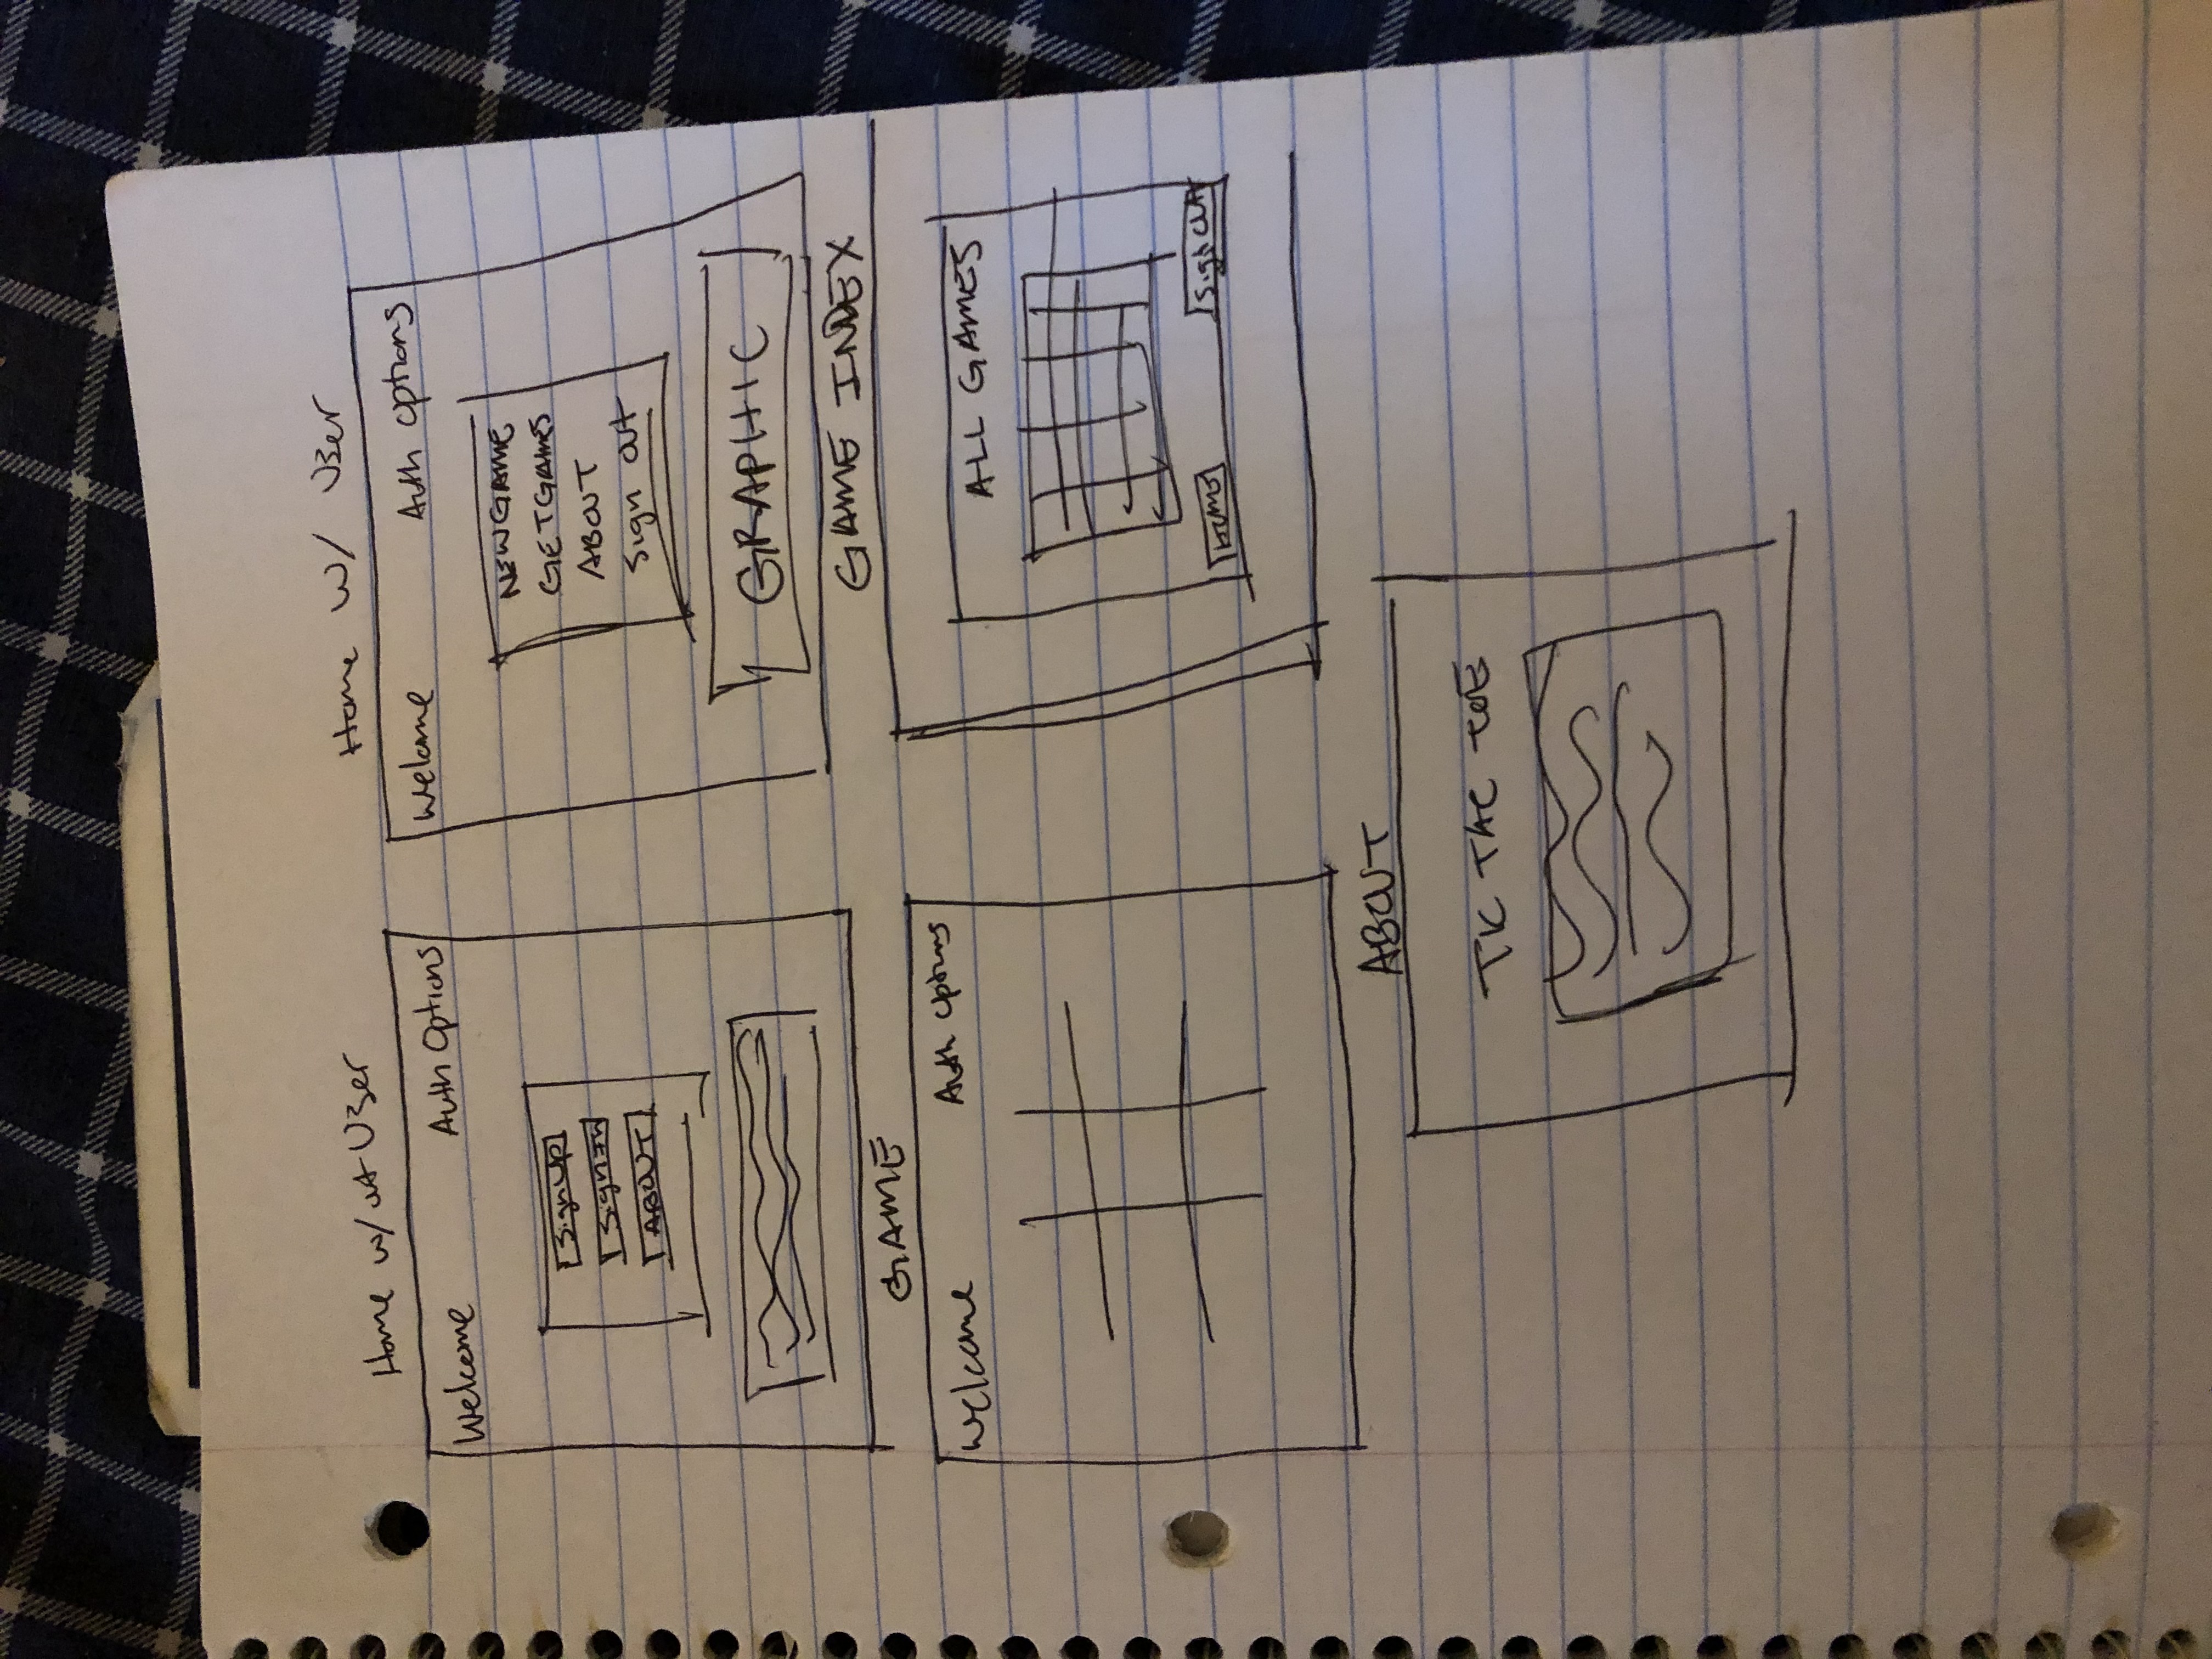 Home w/out User
Welcome Auth Options
Sign Up
Sign In
ABOUT
Home w/ User
Welcome Auth options
NEW GAME
GET GAMES
ABOUT
Sign out
GRAPHIC
GAME
Welcome Auth options
GAME INDEX
ALL GAMES
HOME Sign out
ABOUT
TIC TAC TOE